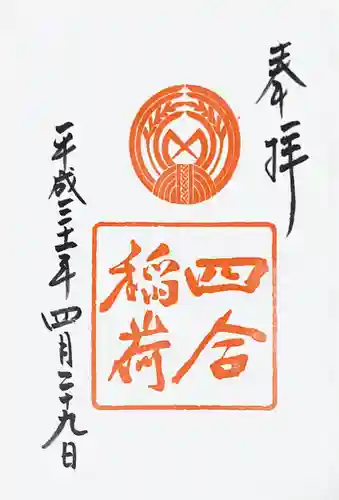 奉拝
四合
稲荷
平成三十一年四月二十九日